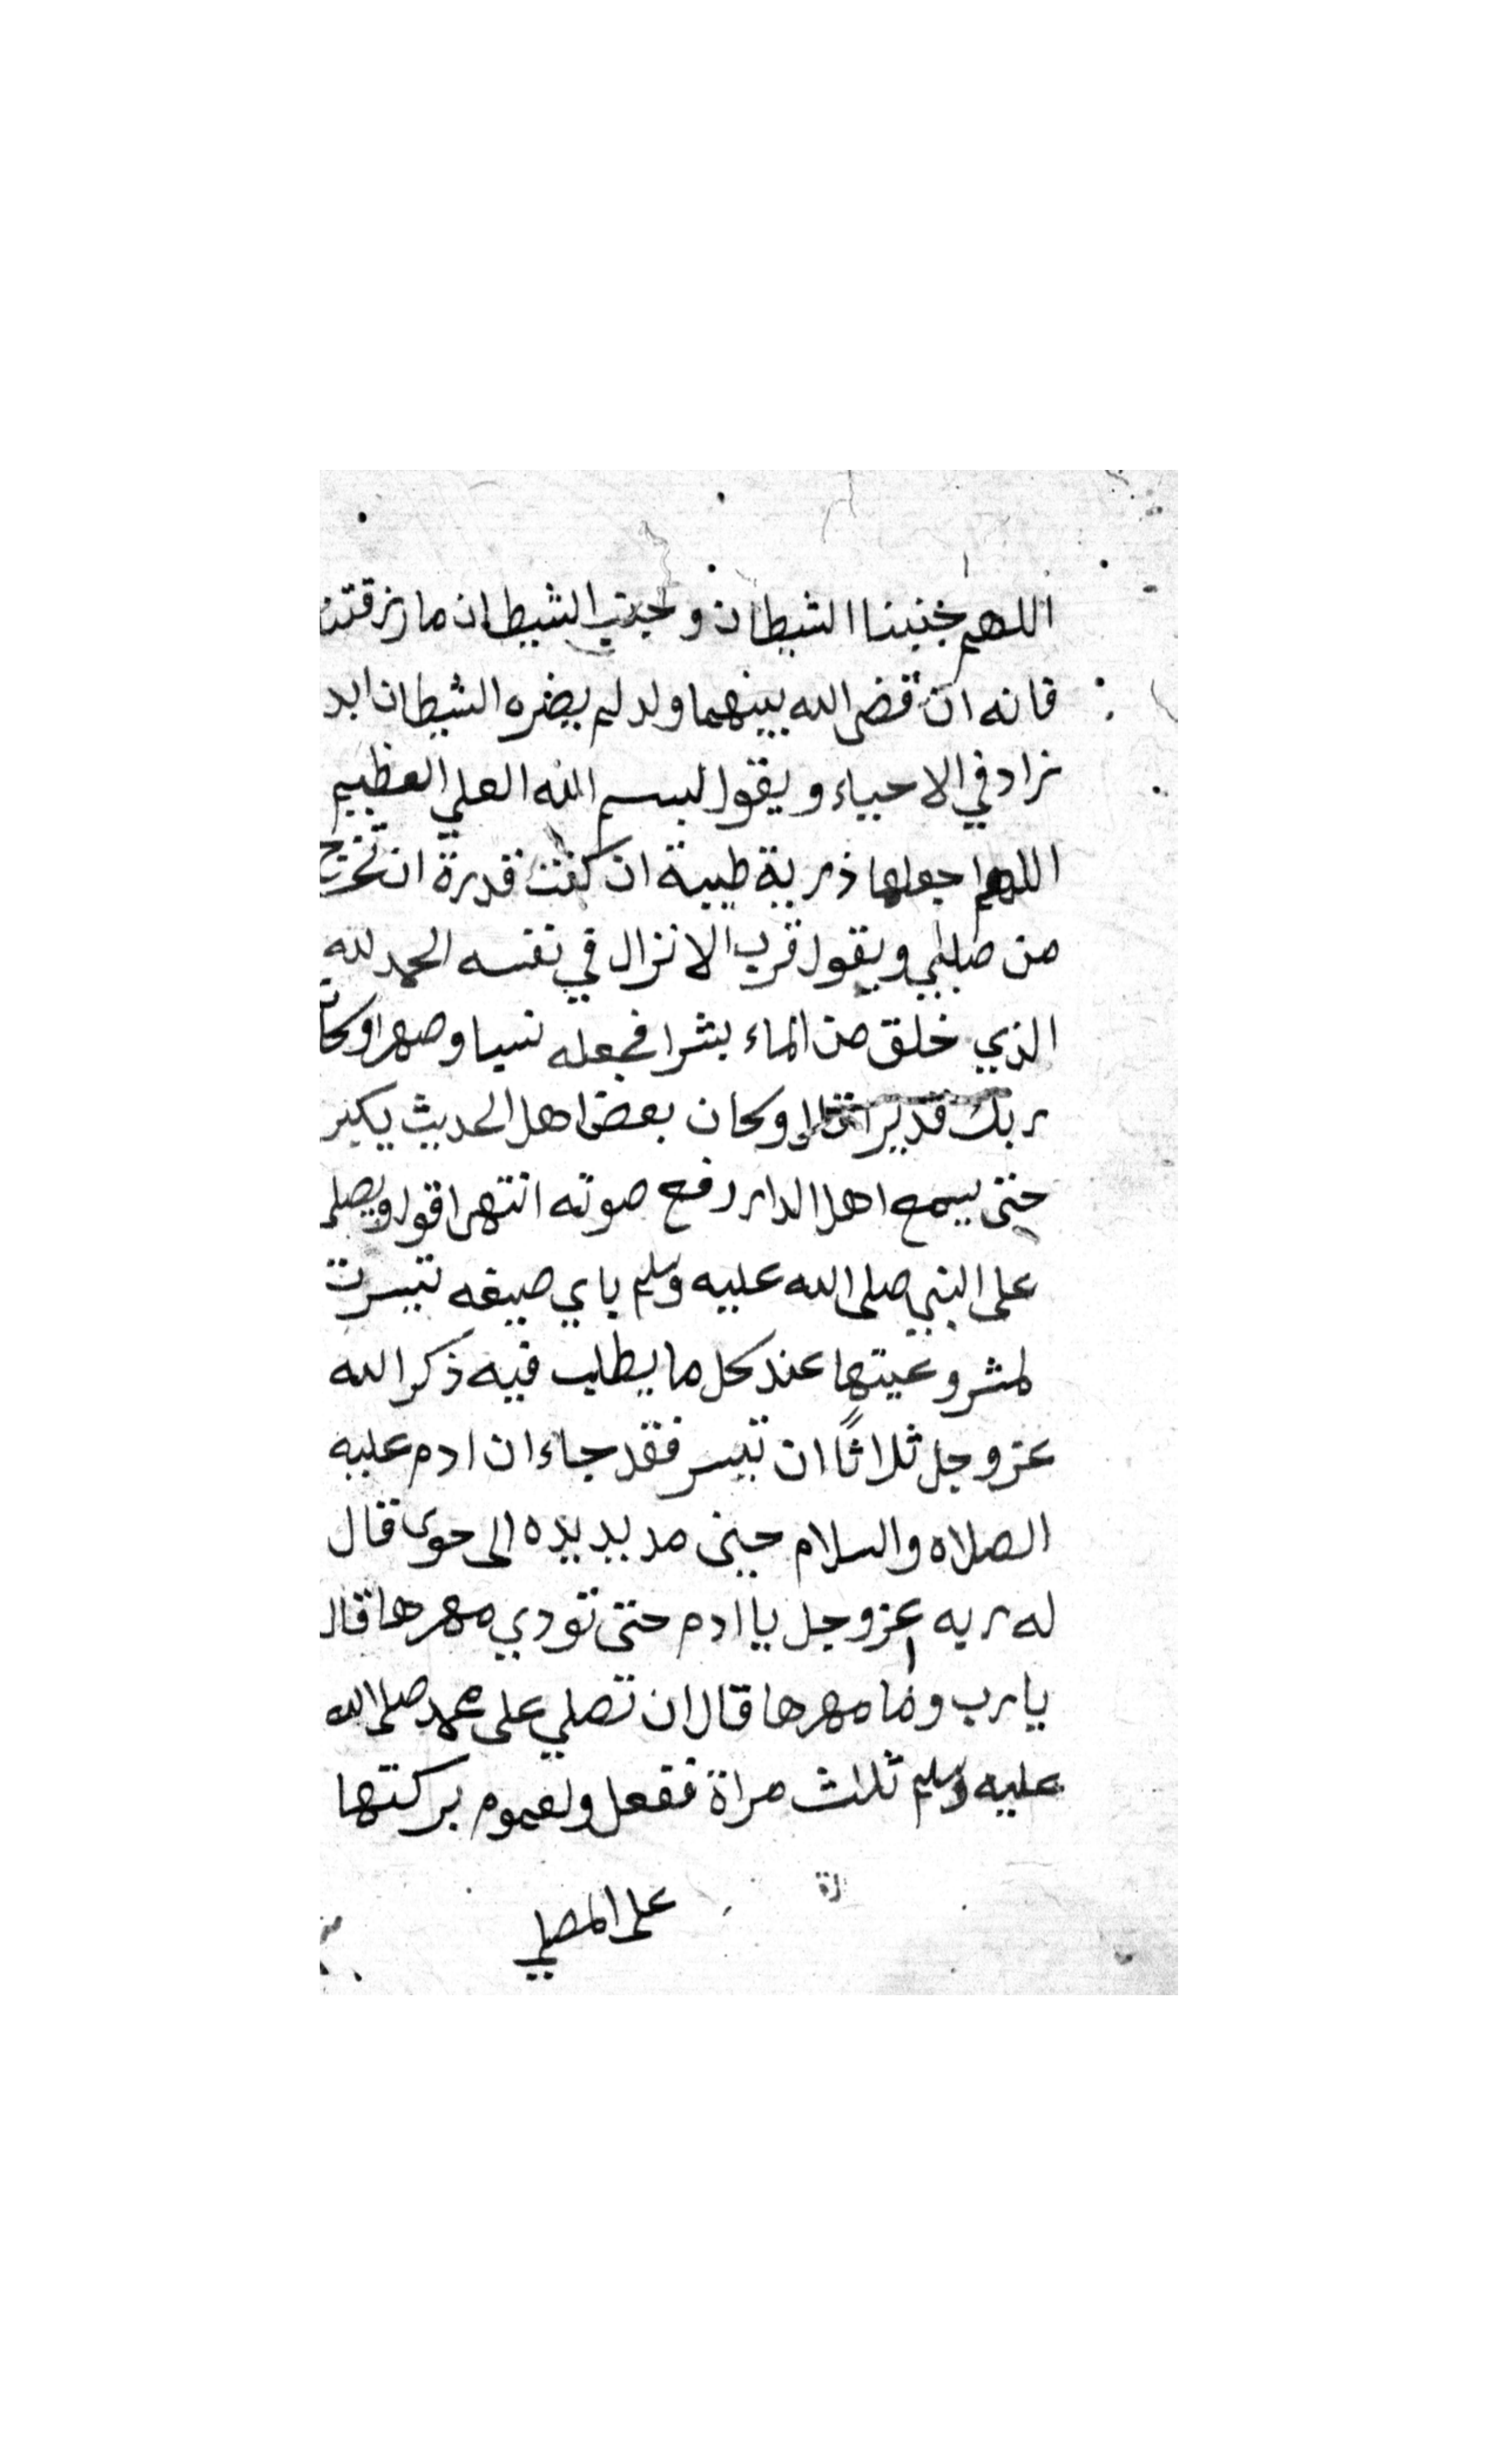 اللهم جنبنا الشيطان وجنب الشيطان ما رزقتنا
فانه ان قضى الله بينهما ولد لم يضره الشيطان ابد
زاد في الاحياء ويقول بسم الله العلي العظيم
اللهم اجعلها ذرية طيبة ان كنت قدرة ان تخرج
من صلبي ويقول قرب الانزال في نفسه الحمد لله
الذي خلق من الماء بشرا فجعله نسبا وصهرا وكان
ربك قديرا وكان بعض اهل الحديث يكبر
حتى يسمع اهل الدار رفع صوته انتهى اقول ويصلى
على النبي صلى الله عليه وسلم باي صيغه تيسرت
لمشروعيتها عند كل ما يطلب فيه ذكر الله
عز وجل ثلاثًا ان تيسر فقد جاء ان ادم عليه
الصلاه والسلام حينى مد يديده الى حوى قال
له ربه عز وجل يا ادم حتى تودي مهرها قال
يارب وما مهرها قال ان تصلي على محمد صلى الله
عليه وسلم ثلاث مراة ففعل ولعموم بركتها
على المصلي